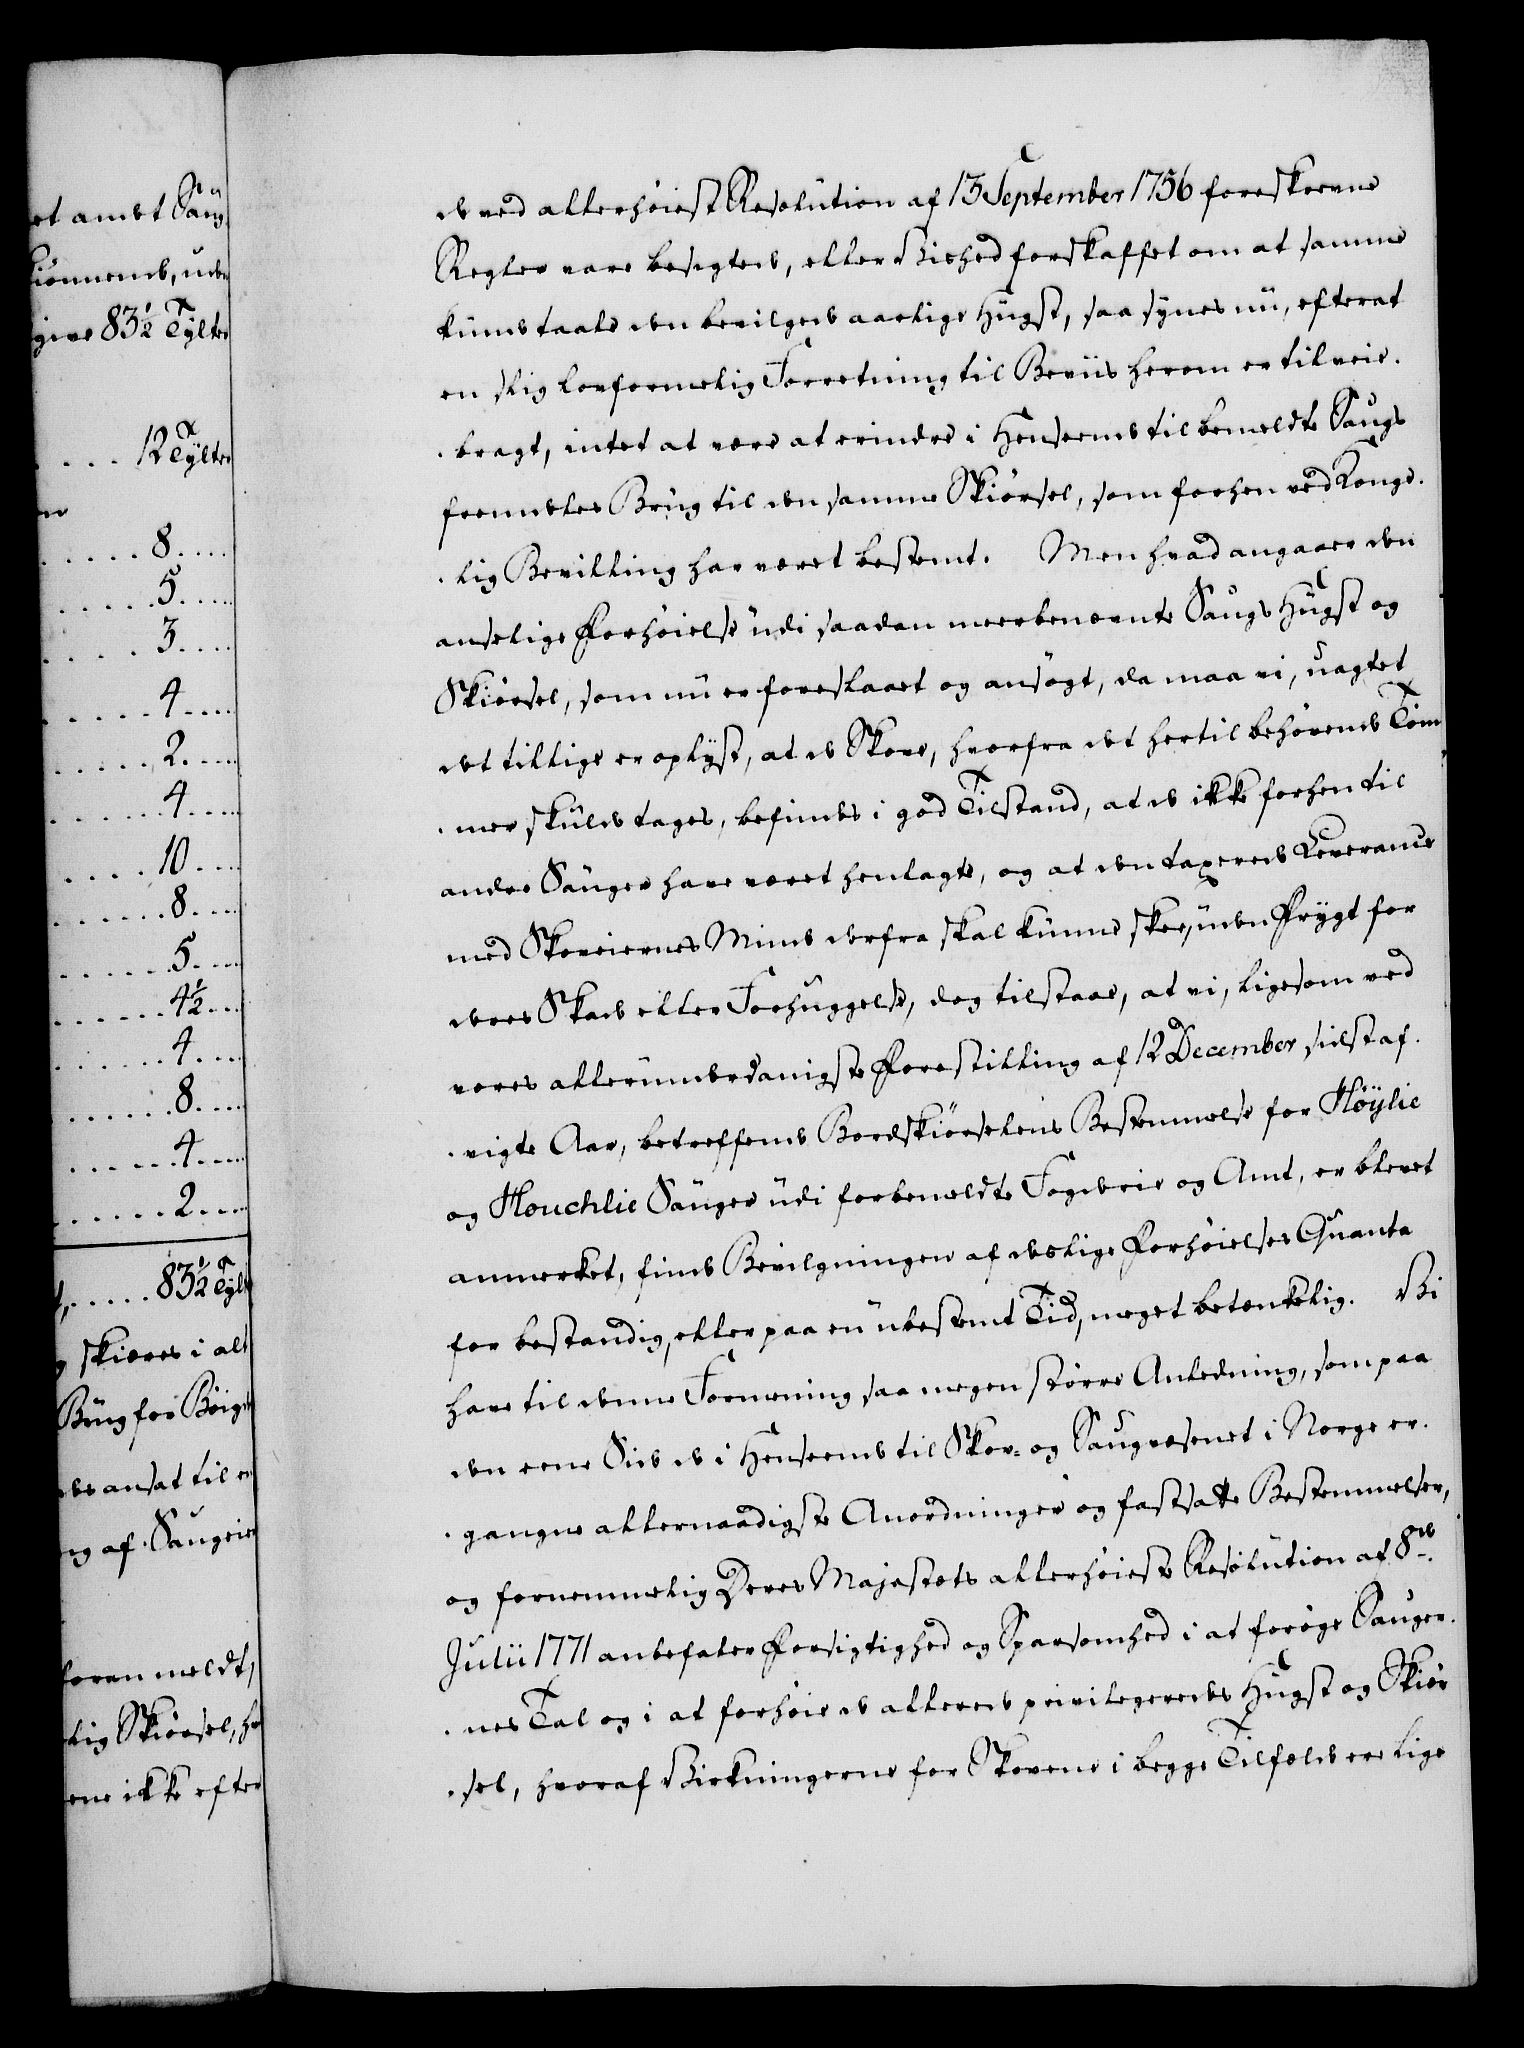 et andet Saug
kiönnende, uden
give 83½ Tylter
. . . . 12 Tylter
. . . . . 8 . . . .
. . . . . 5 . . . .
. . . . . 3 . . . .
. . . . . 4 . . . .
. . . . . 2 . . . .
. . . . . 4 . . . .
. . . . . 10 . . .
. . . . . 8 . . . .
. . . . . 5 . . . .
. . . . . 4½ . . .
. . . . . 4 . . . .
. . . . . 8 . . . .
. . . . . 4 . . . .
. . . . . 2 . . . .
. . . . . 83½ Tylt
skiæres i alt
Brug for Böig
ansat til
af Saugeie
foranmeldt,
lig Skiörsel, h
ene ikke efter
de ved allerhöiest Resolution af 13 September 1756 foreskrevne
Regler vare besigtede, eller Vished forskaffet om at samme
kunde taale den bevilgede aarlige Hugst, saa synes nu, efterat
en slig lovformelig Forretning til Beviis herom er tilveie-
bragt, intet at være at erindre i Henseende til bemeldte Saugs
fremdeles Brug til den samme Skiörsel, som forhen ved Konge-
lig Bevilling har været bestemt. Men hvad angaaer den
anselige Forhöielse udi saadan meerbenævnte Saugs Hugst og
Skiörsel, som nu er foreslaaet og ansögt, da maa vi, uagtet
det tillige er oplyst, at de Skove, hvorfra det hertil behövende Töm
mer skulde tages, befindes i god Tilstand, at de ikke forhen til
andre Sauger have været henlagte, og at den taxerede Leverance
med Skoveiernes Minde derfra skal kunne skee, uden Frygt for
deres Skade eller Forhuggelse, dog tilstaae, at vi, ligesom ved
vores allerunderdanigste Forestilling af 12 December sidstaf-
vigte Aar, betreffende Bordskiörselens Bestemmelse for Höylie
og Houchlie Sauger udi forbemeldte Fogderie og Amt, er blevet
anmerket, finde Bevilgningen af deslige Forhöielses Quanta
for bestandig, eller paa en ubestemt Tid, meget betænkelig. Vi
have til denne Formening saa megen större Anledning, som paa
den eene Side de i Henseende til Skov- og Saugvæsenet i Norge er-
gangne allernaadigste Anordninger og fastsatte Bestemmelser,
og fornemmelig Deres Majestæts allerhöieste Resolution af 8de
Julii 1771 anbefaler Forsigtighed og Sparsomhed i at foröge Sauger-
nes Tal og i at forhöie de allerede privilegeredes Hugst og Skiör
sel, hvoraf Virkningerne for Skovene i begge Tilfælde ere lige